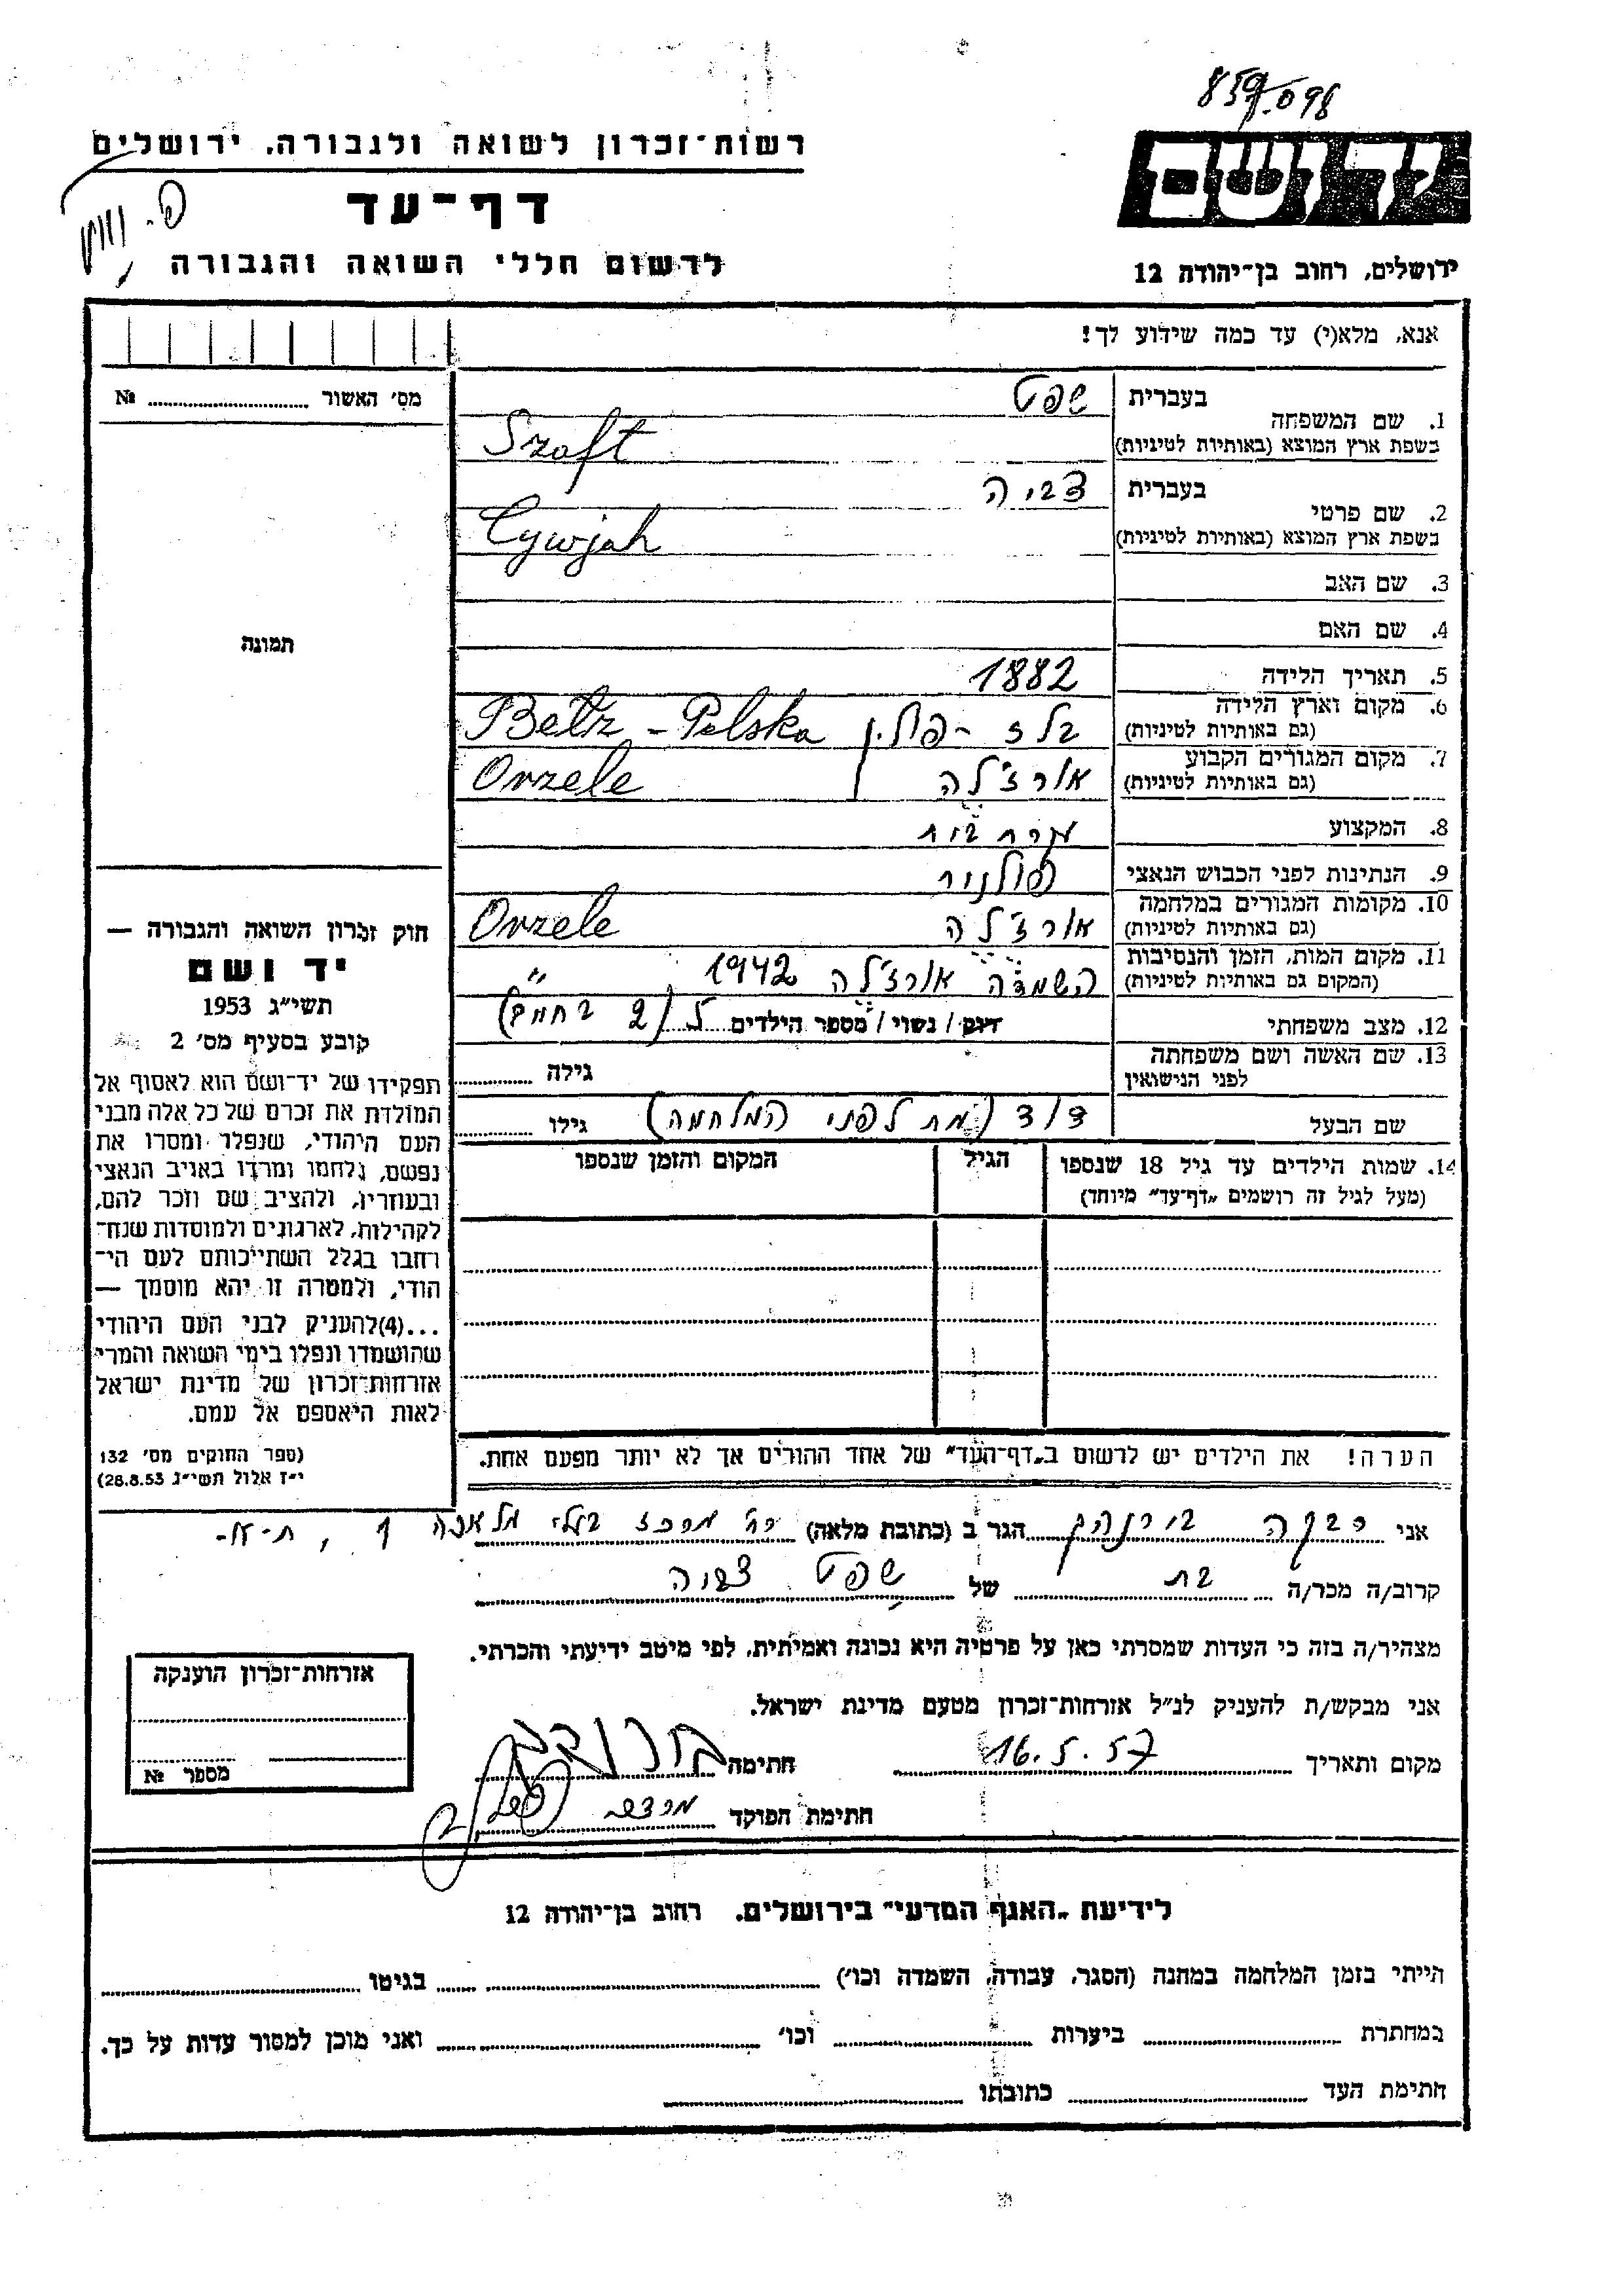 859.098
רשות-זכרון לשואה ולגבורה, ירושלים
יד ושם
דף-עד
לרשום חללי השואה והגבורה
ירושלים, רחוב בן-יהודה 12
אנא, מלא(י) עד כמה שידוע לך!
1. שם המשפחה בעברית שפט
בשפת ארץ המוצא (באותיות לטיניות) Szaft
2. שם פרטי בעברית צביה
בשפת ארץ המוצא (באותיות לטיניות) Cywjah
3. שם האב
4. שם האם
5. תאריך הלידה 1882
6. מקום וארץ הלידה
(גם באותיות לטיניות) בלז - פולין Betz - Polska
7. מקום המגורים הקבוע
(גם באותיות לטיניות) אורז'לה Orzele
8. המקצוע
9. הנתינות לפני הכבוש הנאצי
10. מקומות המגורים במלחמה
(גם באותיות לטיניות) אורז'לה Orzele
11. מקום המות, הזמן והנסיבות
(המקום גם באותיות לטיניות) השמדה אורז'לה 1942 "
12. מצב משפחתי רווק / נשוי / מספר הילדים
13. שם האשה ושם משפחתה
לפני הנישואין גילה
שם הבעל דוד (מת לפני המלחמה) גילו
14. שמות הילדים עד גיל 18 שנספו הגיל המקום והזמן שנספו
(מעל לגיל זה רושמים "דף-עד" מיוחד)
הערה! את הילדים יש לרשום ב"דף-העד" של אחד ההורים אך לא יותר מפעם אחת.
מס' האשור №
תמונה
חוק זכרון השואה והגבורה —
יד ושם
תשי"ג 1953
קובע בסעיף מס' 2
תפקידו של יד-ושם הוא לאסוף אל
המולדת את זכרם של כל אלה מבני
העם היהודי, שנפלו ומסרו את
נפשם, נלחמו ומרדו באויב הנאצי
ובעוזריו, ולהציב שם וזכר להם,
לקהילות, לארגונים ולמוסדות שנח-
רחבו בגלל השתייכותם לעם הי-
הודי, ולמטרה זו יהא מוסמך —
...(4)להעניק לבני העם היהודי
שהושמדו ונפלו בימי השואה והמרי
אזרחות-זכרון של מדינת ישראל
לאות היאספם אל עמם.
(ספר החוקים מס' 132
י"ז אלול תשי"ג 28.8.53)
אני רבקה הגר ב (כתובת מלאה) רח' מרכז בעלי מלאכה 9, ת-א-
קרוב/ה מכר/ה בת של שפט צביה
מצהיר/ה בזה כי העדות שמסרתי כאן על פרטיה היא נכונה ואמיתית, לפי מיטב ידיעתי והכרתי.
אני מבקש/ת להעניק לנ"ל אזרחות-זכרון מטעם מדינת ישראל.
מקום ותאריך 16.5.57 חתימה
חתימת הפוקד
אזרחות-זכרון הוענקה
מספר №
לידיעת "האגף המדעי" בירושלים, רחוב בן-יהודה 12
הייתי בזמן המלחמה במחנה (הסגר, עבודה, השמדה וכו') בגיטו
במחתרת ביערות וכו' ואני מוכן למסור עדות על כך.
חתימת העד כתובתו